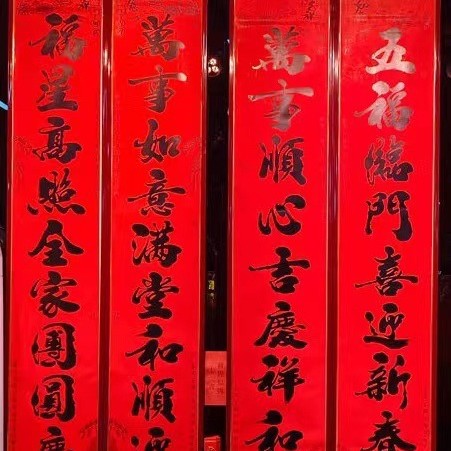 五福臨門喜迎新春
萬事順心吉慶祥和
萬事如意滿堂和順迎
福星高照全家團圓慶